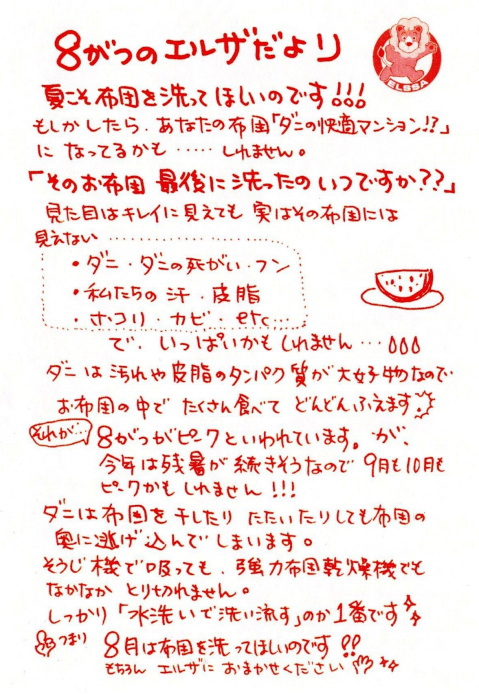 8がつのエルザだより
ELSSA
夏こそ布団を洗ってほしいのです!!!
もしかしたら、あなたの布団「ダニの快適マンション!?」
になってるかも・・・・・しれません。
「そのお布団 最後に洗ったのいつですか??」
見た目はキレイに見えても 実はその布団には
見えない
・ダニ・ダニの死がい・フン
・私たちの汗・皮脂
・ホコリ・カビ・etc…
で、いっぱいかもしれません…
ダニは汚れや皮脂のタンパク質が大好物なので
お布団の中で たくさん食べて どんどんふえます
それが… 8がつがピークといわれています。が、
今年は残暑が続きそうなので 9月も10月も
ピークかもしれません!!!
ダニは布団を干したり たたいたりしても布団の
奥に逃げ込んでしまいます。
そうじ機で吸っても、強力布団乾燥機でも
なかなか とり切れません。
しっかり「水洗いで洗い流す」のが1番です
つまり 8月は布団を洗ってほしいのです!!
もちろん エルザに おまかせください